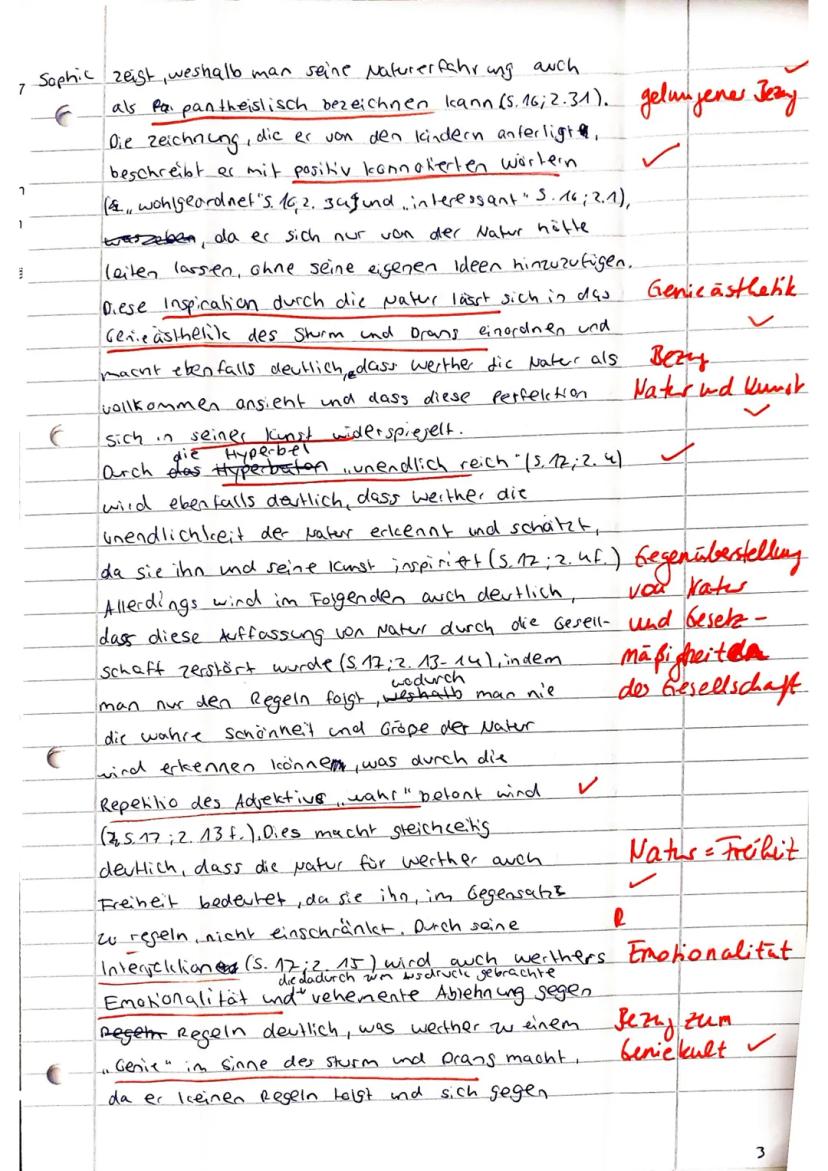 7 Sophie zeigt, weshalb man seine Naturerfahrung auch
als pantheistisch bezeichnen kann (S.16; Z.31). gelungener Bezug
Die Zeichnung, die er von den Kindern anfertigte,
beschreibt er mit positiv konnotierten Wörtern
("wohlgeordnet" S.16, Z. 34f und "interessant" S.16; Z.1),
da er sich nur von der Natur hätte
leiten lassen, ohne seine eigenen Ideen hinzuzufügen.
Diese Inspiration durch die Natur lässt sich in das Genieästhetik
Genieästhetik des Sturm und Drang einordnen und
macht ebenfalls deutlich, dass Werther die Natur als Bezug
vollkommen ansieht und dass diese Perfektion Natur und Kunst
sich in seiner Kunst widerspiegelt.
die Hyperbel
Durch das Hyperbaton "unendlich reich" (S.17; Z.4)
wird ebenfalls deutlich, dass Werther die
Unendlichkeit der Natur erkennt und schätzt,
da sie ihn und seine Kunst inspiriert (S.17; Z.4f.) Gegenüberstellung
Allerdings wird im Folgenden auch deutlich, von Natur
dass diese Auffassung von Natur durch die Gesell- und Gesetz-
schaft zerstört wurde (S.17; Z.13-14), indem mäßigkeit
wodurch
man nur den Regeln folgt, weshalb man nie der Gesellschaft
die wahre Schönheit und Größe der Natur
wird erkennen können, was durch die
Repetitio des Adjektivs "wahr" betont wird
(S.17; Z.13f.). Dies macht gleichzeitig
deutlich, dass die Natur für Werther auch Natur = Freiheit
Freiheit bedeutet, da sie ihn, im Gegensatz
zu regeln, nicht einschränkt. Durch seine R
Interjektionen (S.17; Z.15) wird auch Werthers Emotionalität
die dadurch zum Ausdruck gebrachte
Emotionalität und vehemente Ablehnung gegen
Regeln Regeln deutlich, was Werther zu einem Bezug zum
"Genie" im Sinne des Sturm und Drang macht, Geniekult
da er keinen Regeln folgt und sich gegen
3